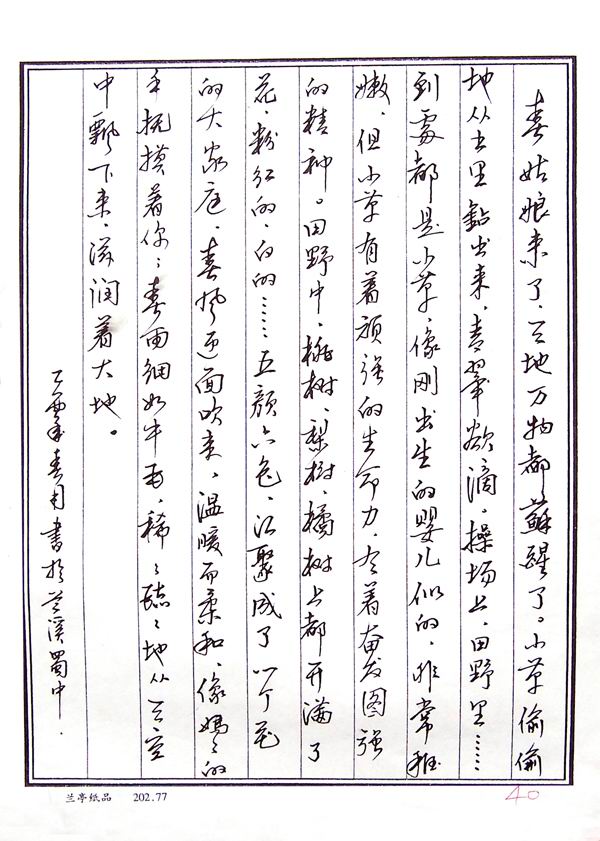 春姑娘来了、天地万物都蘇醒了。小草偷偷
地从土里鉆出来、青翠欲滴。操场上、田野里……
到處都是小草、像刚出生的婴儿似的、非常稚
嫩、但小草有着顽强的生命力、有着奋发图强
的精神。田野中、桃树、梨树、橘树上都开满了
花、粉红的、白的……五颜六色、汇聚成了一个花
的大家庭、春风迎面吹来、温暖而柔和、像妈妈的
手抚摸着你；春雨细如牛毛、稀稀疏疏地从天空
中飘下来、滋润着大地。
乙酉年春月書於兰溪蜀中.
兰亭纸品 202.77
40